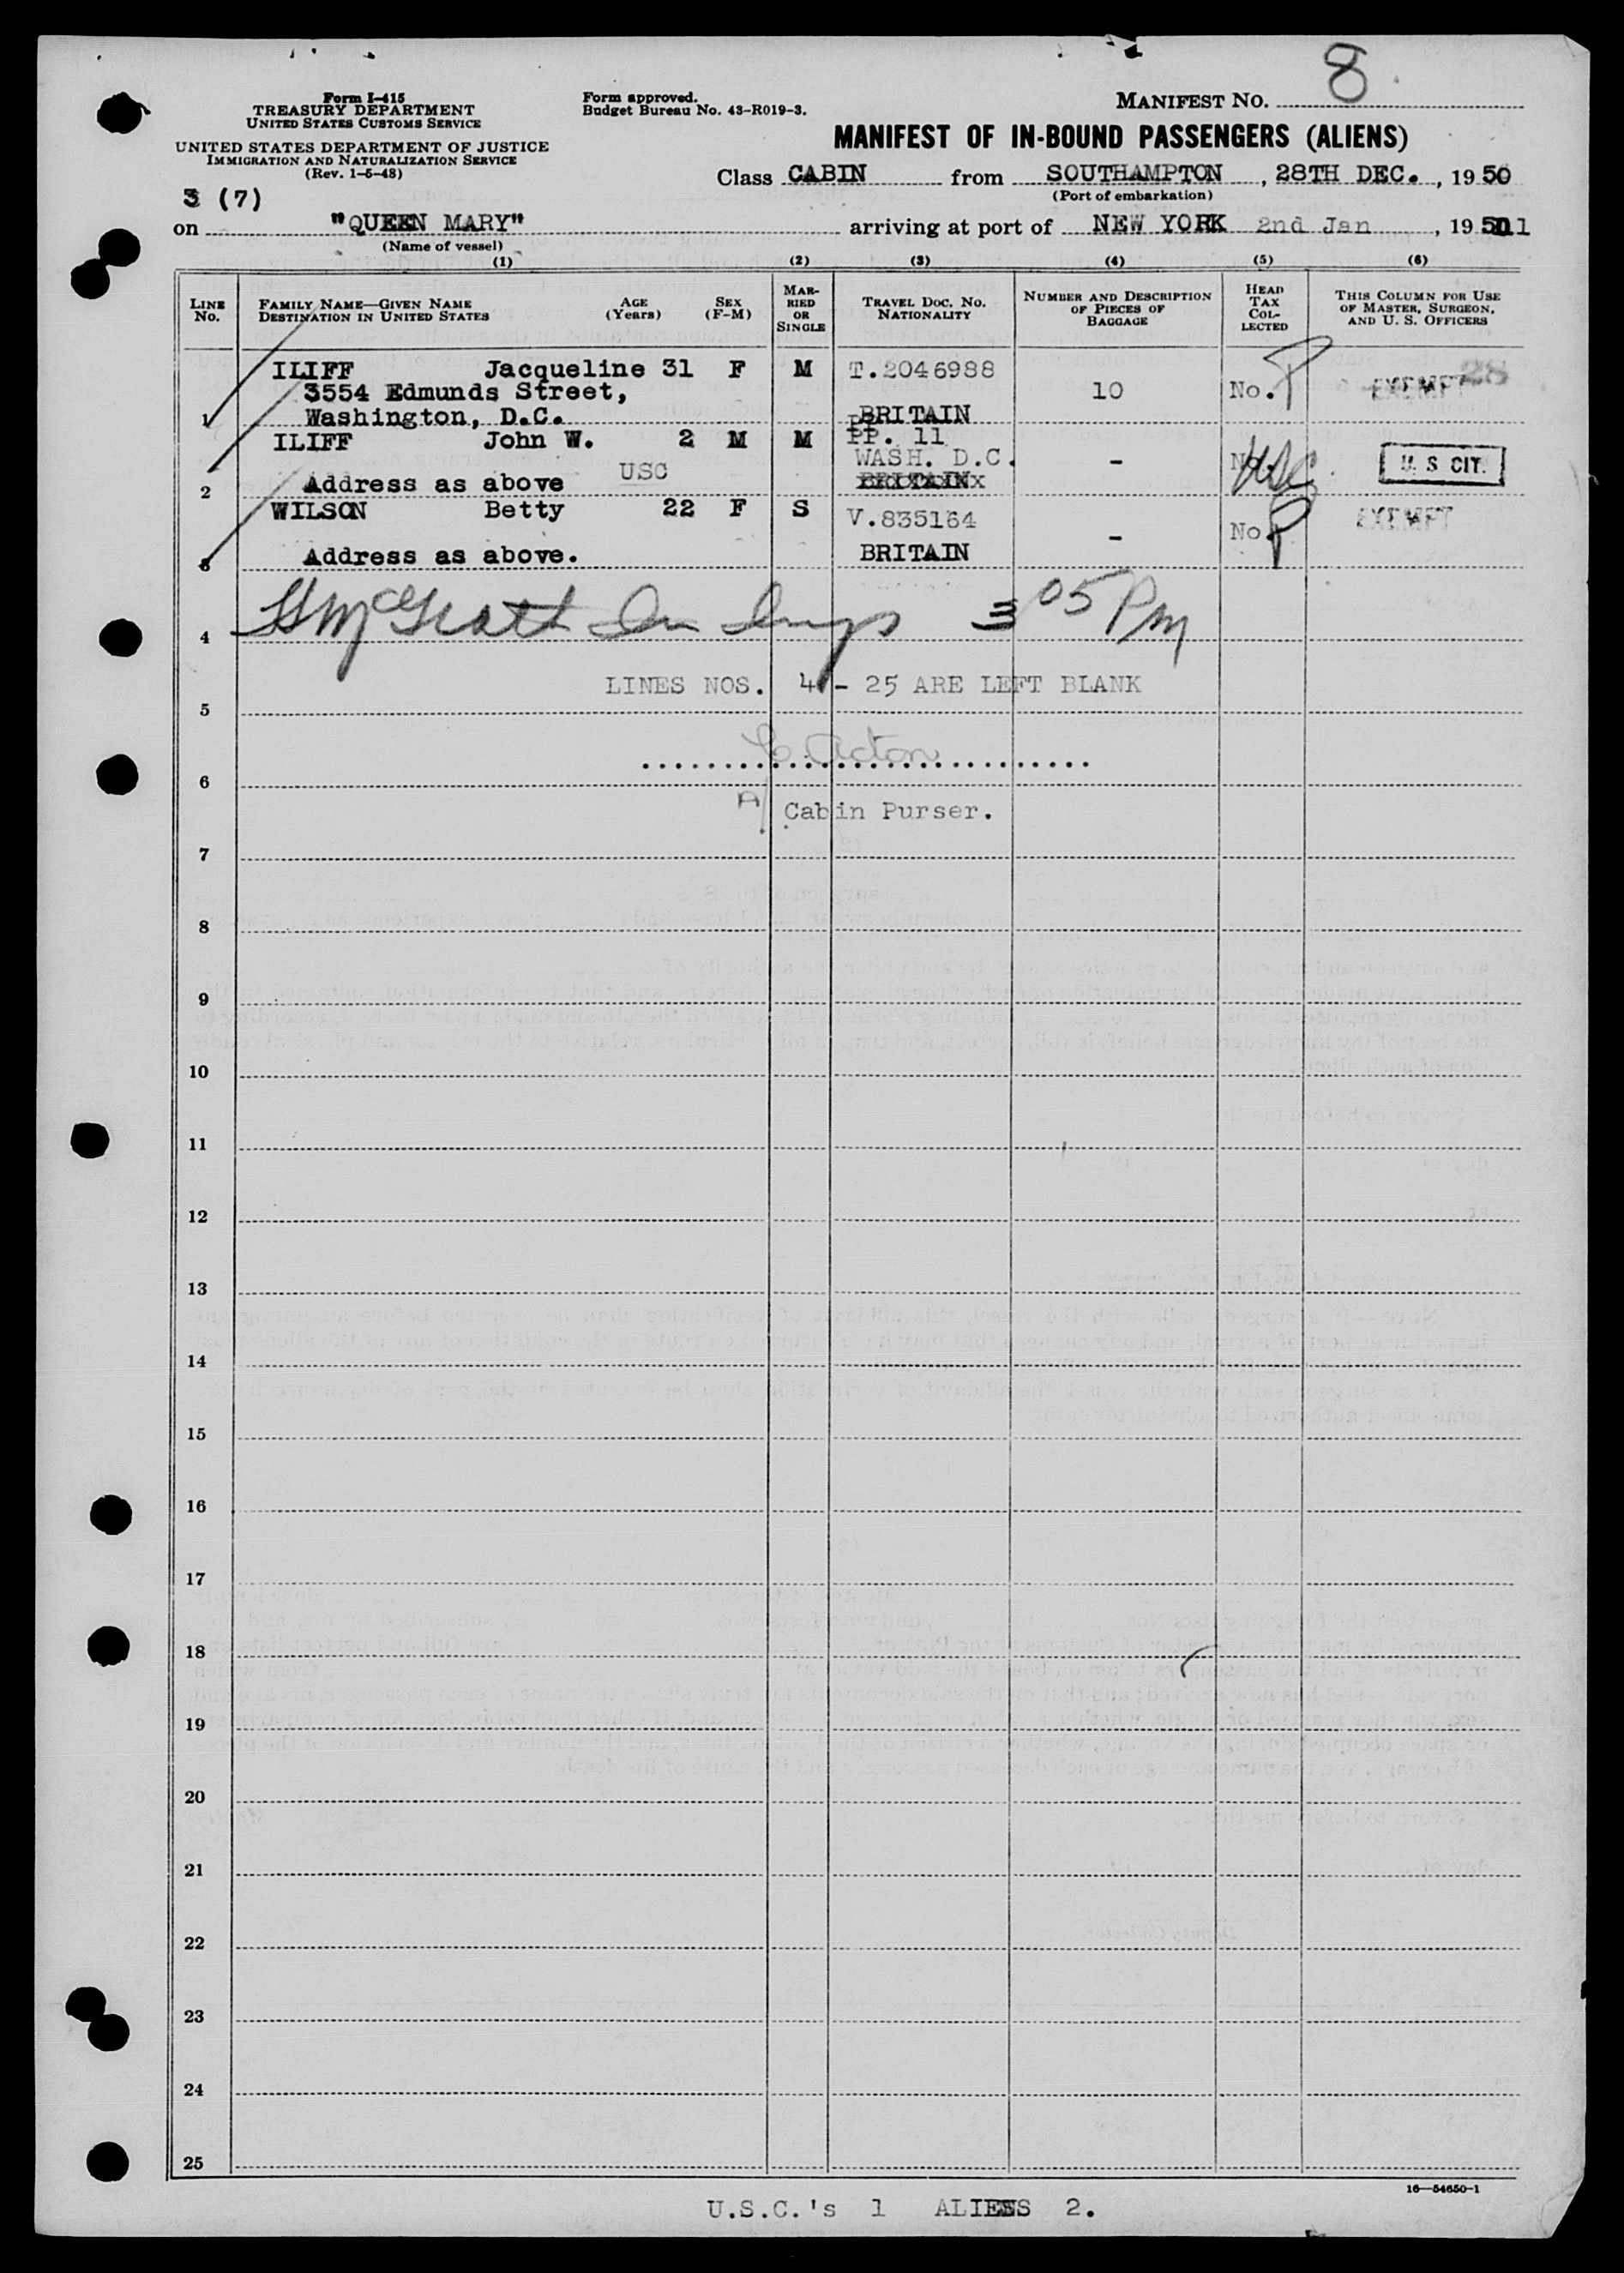 Form I-415
TREASURY DEPARTMENT
UNITED STATES CUSTOMS SERVICE
UNITED STATES DEPARTMENT OF JUSTICE
IMMIGRATION AND NATURALIZATION SERVICE
(Rev. 1-5-48)
Form approved.
Budget Bureau No. 43-R019-3.
MANIFEST NO. 8
MANIFEST OF IN-BOUND PASSENGERS (ALIENS)
Class CABIN from SOUTHAMPTON, 28TH DEC., 1950
(Port of embarkation)
3 (7)
on "QUEEN MARY" arriving at port of NEW YORK 2nd Jan, 1951
(Name of vessel)
(1) (2) (3) (4) (5) (6)
LINE No.
FAMILY NAME—GIVEN NAME
DESTINATION IN UNITED STATES
AGE (Years)
SEX (F-M)
MARRIED OR SINGLE
TRAVEL DOC. NO.
NATIONALITY
NUMBER AND DESCRIPTION OF PIECES OF BAGGAGE
HEAD TAX COLLECTED
THIS COLUMN FOR USE OF MASTER, SURGEON, AND U. S. OFFICERS
ILIFF Jacqueline 31 F M T.2046988
3554 Edmunds Street, 10 No. EXEMPT 28
1 Washington, D.C. BRITAIN
ILIFF John W. 2 M M PP. 11
USC WASH. D.C. - No. USC U. S CIT.
2 Address as above BRITAIN
WILSON Betty 22 F S V.835164 EXEMPT
- No.
3 Address as above. BRITAIN
4 3 05 PM
LINES NOS. 4 - 25 ARE LEFT BLANK
5
Acton
6
A/ Cabin Purser.
7
8
9
10
11
12
13
14
15
16
17
18
19
20
21
22
23
24
25
16—54650-1
U.S.C.'s 1 ALIENS 2.